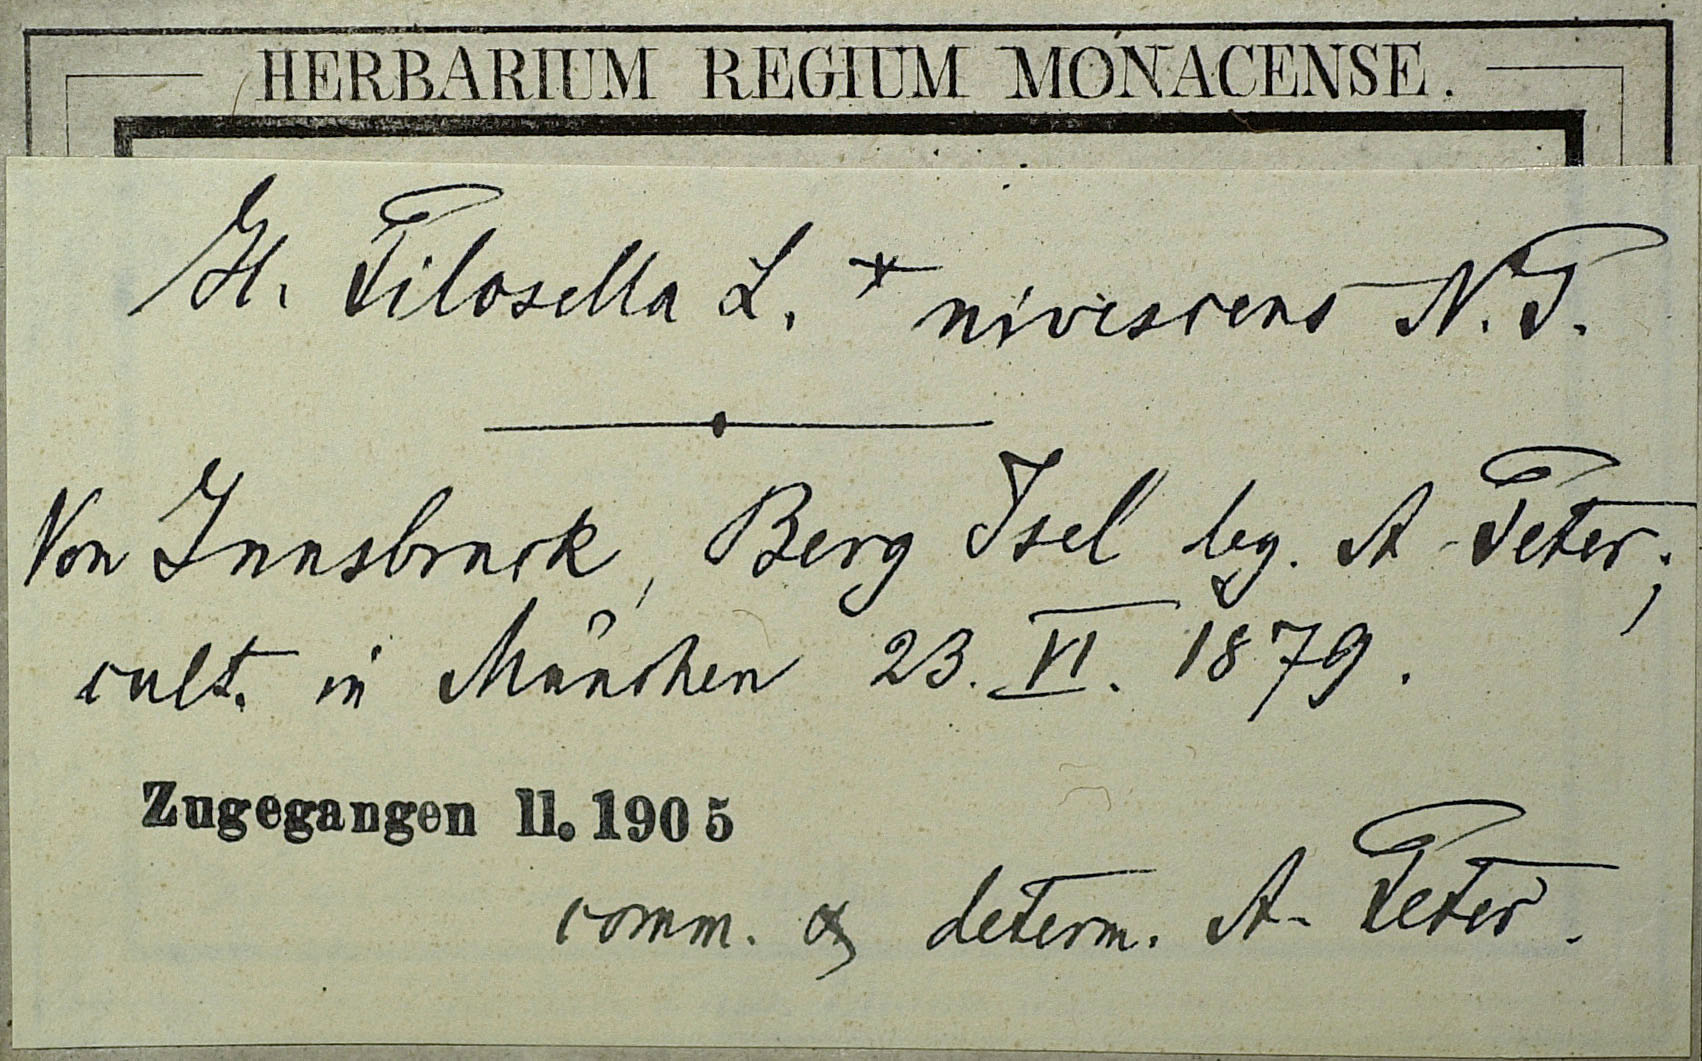 HERBARIUM REGIUM MONACENSE.
H. Pilosella L. * nivescens N.P.
Von Innsbruck, Berg Isel leg. A. Peter;
cult. in München 23. VI. 1879.
Zugegangen II. 1905
comm. & determ. A. Peter.